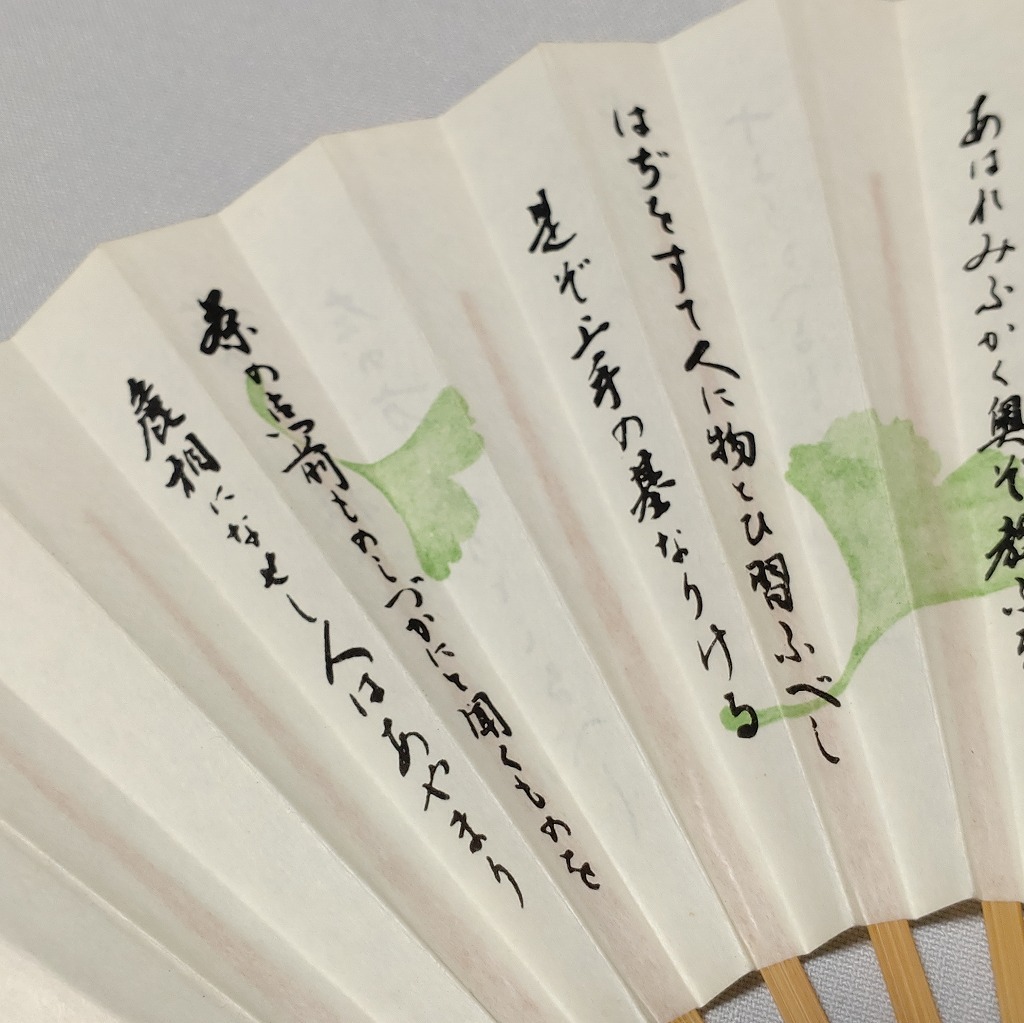 あはれみふかく奥ぞ教ふる
はぢをすて人に物とひ習ふべし
是ぞ上手の基なりける
茶の点前ものしづかにと聞くものを
麁相になせし人はあやまり